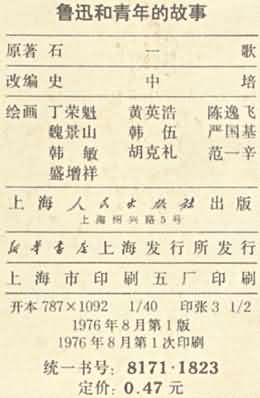 鲁迅和青年的故事
原著 石一歌
改编 史中培
绘画 丁荣魁 黄英浩 陈逸飞
魏景山 韩伍 严国基
韩敏 胡克礼 范一辛
盛增祥
上海人民出版社出版
上海绍兴路5号
新华书店上海发行所发行
上海市印刷五厂印刷
开本 787×1092 1/40 印张 3 1/2
1976年8月第1版
1976年8月第1次印刷
统一书号: 8171·1823
定价: 0.47 元